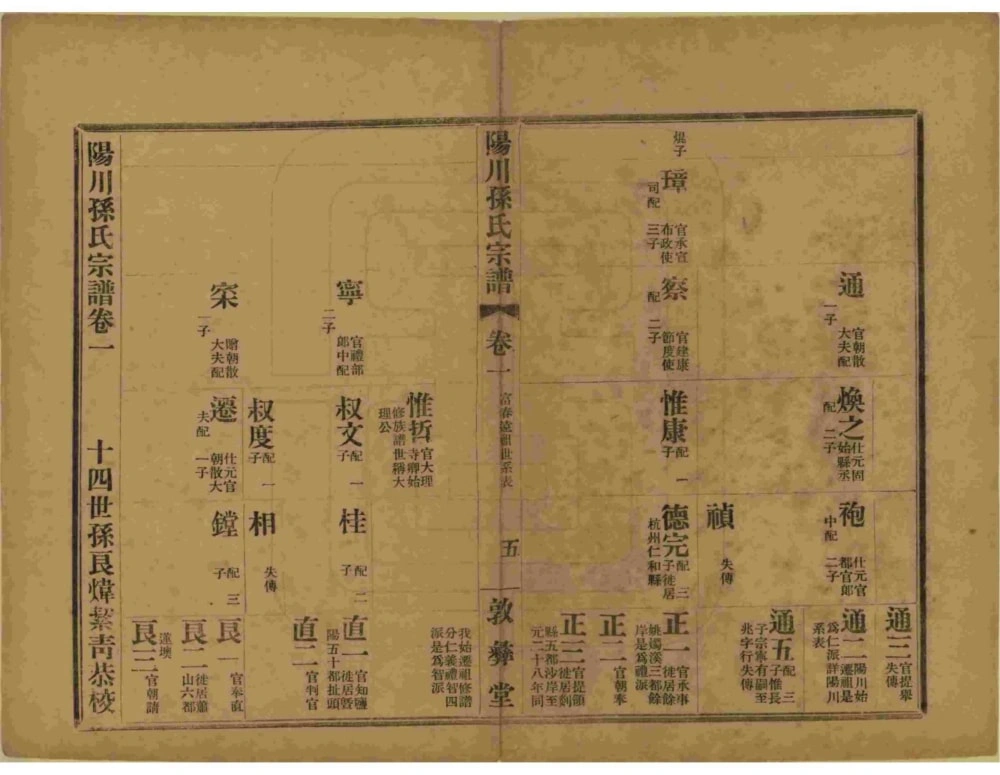 通
官朝散
大夫配
一子
煥之
仕元固
始縣丞
配
二子
袍
仕元官
都官郎
中配
二子
通三
官提舉
失傳
通二
陽川始
遷祖是
爲仁派詳陽川
系表
通五
配 三
子惟長
子宗寧有嗣至
兆字行失傳
禎
失傳
焜子
璋
官承宣
布政使
司配
三子
察
官建康
節度使
配 二子
惟康
配 一
子
德完
配 三
子徙居
杭州仁和縣
正一
官承事
徙居餘
姚燭溪三都餘
岸是爲禮派
正二
官朝奉
正三
官提領
徙居剡
縣五都沙岸至
元二十八年同
陽川孫氏宗譜
卷一
富春遠祖世系表
五
敦彝堂
我始遷祖修譜
分仁義禮智四
派是爲智派
惟哲
官大理
寺卿始
修族譜世稱大
理公
寧
官禮部
郎中配
二子
叔文
配 一
子
桂
配 二
子
直一
官知鹽
徙居暨
陽五十都扯頭
直二
官判官
叔度
配 一
子
相
失傳
宷
贈朝散
大夫配
一子
遷
仕元官
朝散大
夫配
一子
鏜
配 三
子
良一
官奉直
良二
徙居蕭
山六都
良三
官朝請
遷墺
陽川孫氏宗譜卷一
十四世孫良煒紫青恭校